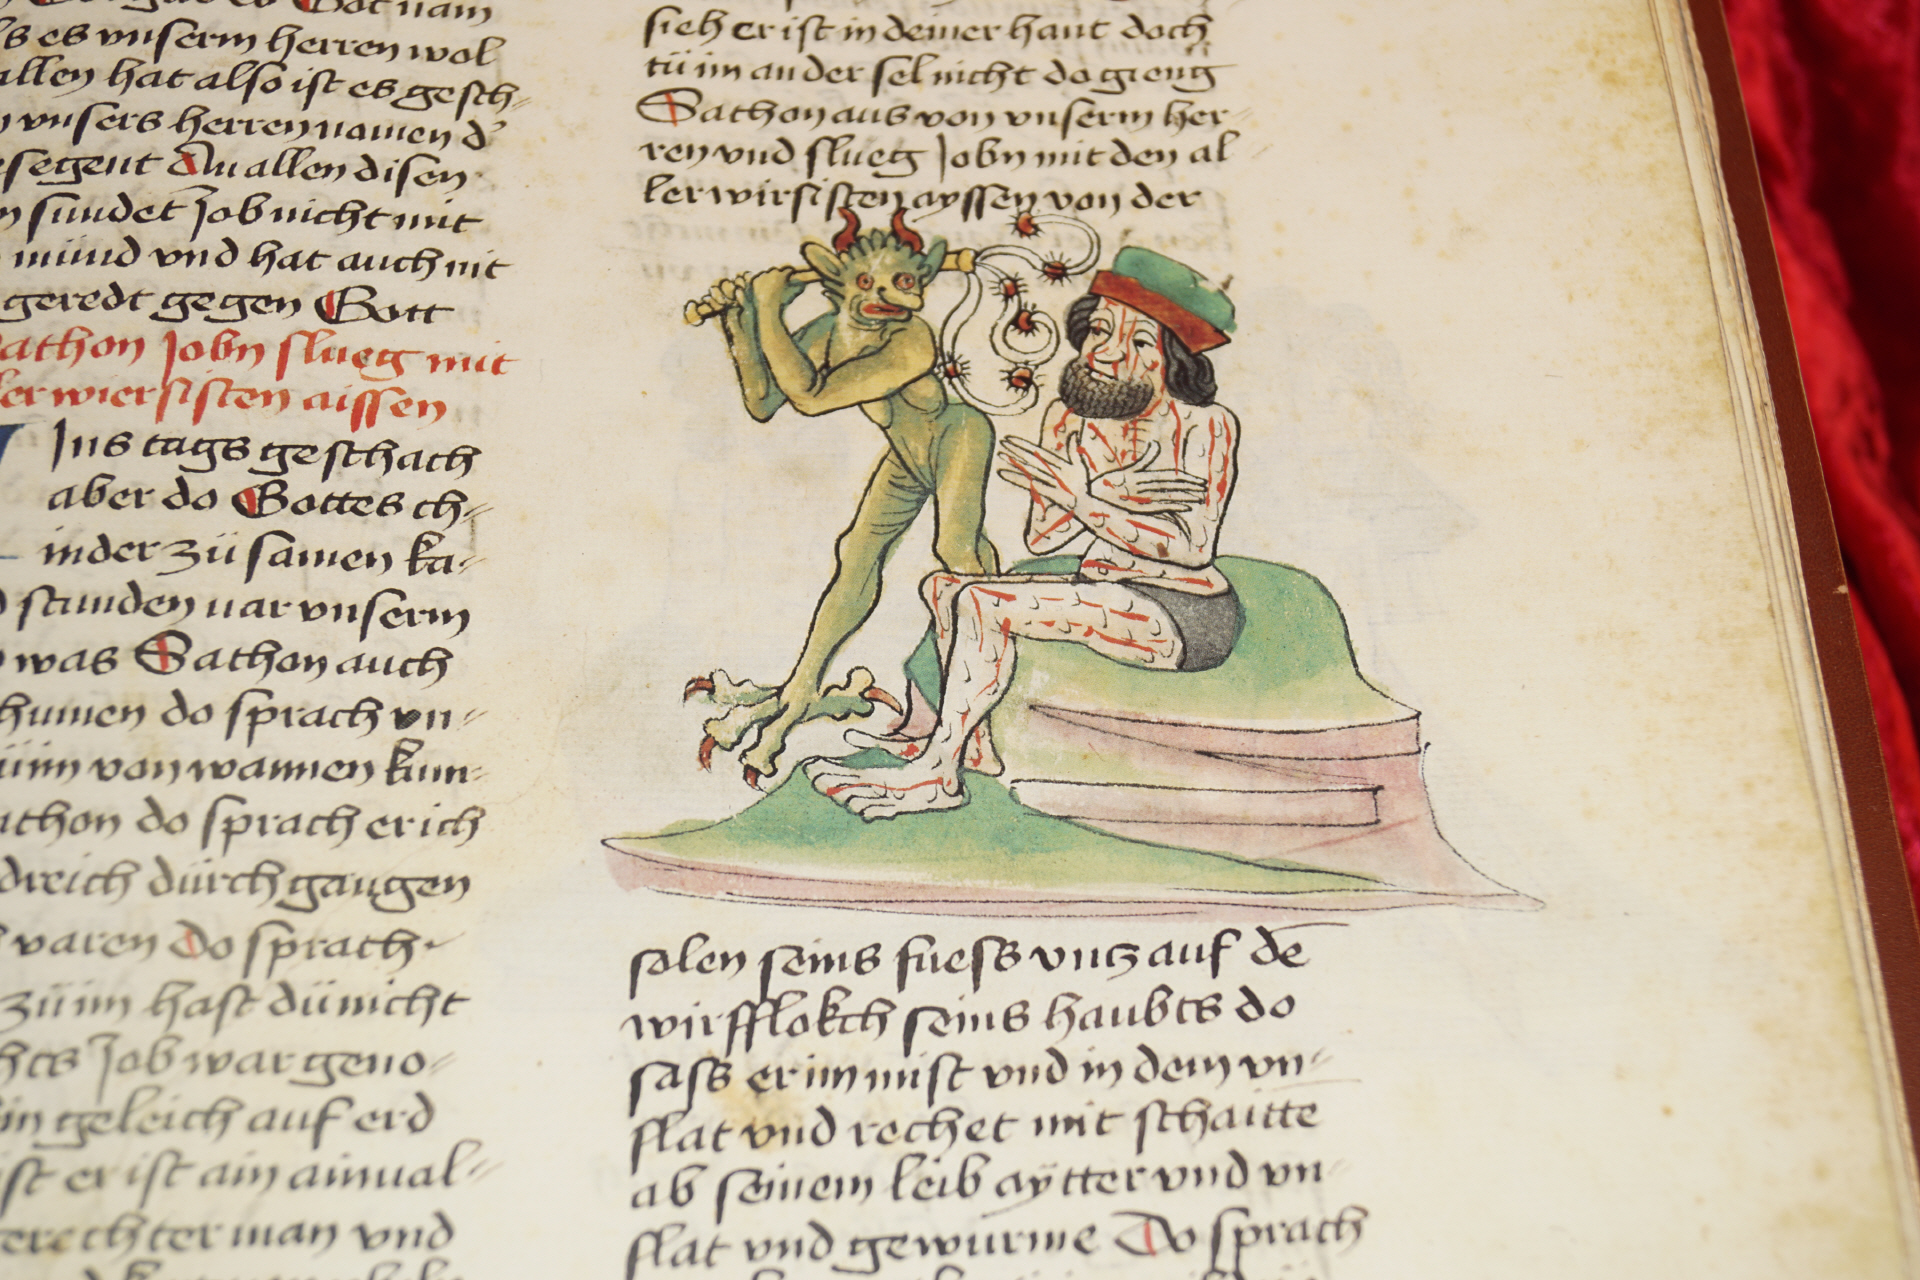 Got nam
es vnserm herren wol
allen hat also ist es gesch-
vnsers herren namen d'
gesegent An allen disen
sundet Job nicht mit
mund vnd hat auch nit
geredt gegen Gott
Sathon Jobn slueg mit
wiersisten aissen
Ins tags geschach
aber do Gottes ch-
inder zü samen ka-
stunden uar vnserm
was Sathon auch
chumen do sprach vn-
von wannen kum-
Sathon do sprach er ich
dreich dürch gangen
varen Do sprach
zü im hast dü nicht
Job war geno-
geleich auf erd
ist er ist ain ainual-
gerechter man vnd
sieh er ist in deiner hant doch
tü im an der sel nicht do gieng
Sathon aus von vnserm her-
ren vnd slueg Jobn mit den al
ler wirsisten ayssen von der
solen seins fuess vntz auf dē
wirfflokch seins haubts do
sass er im mist vnd in dem vn-
flat vnd rechet mit schaitte
ab seinem leib aytter vnd vn-
flat vnd gewurme Do sprach